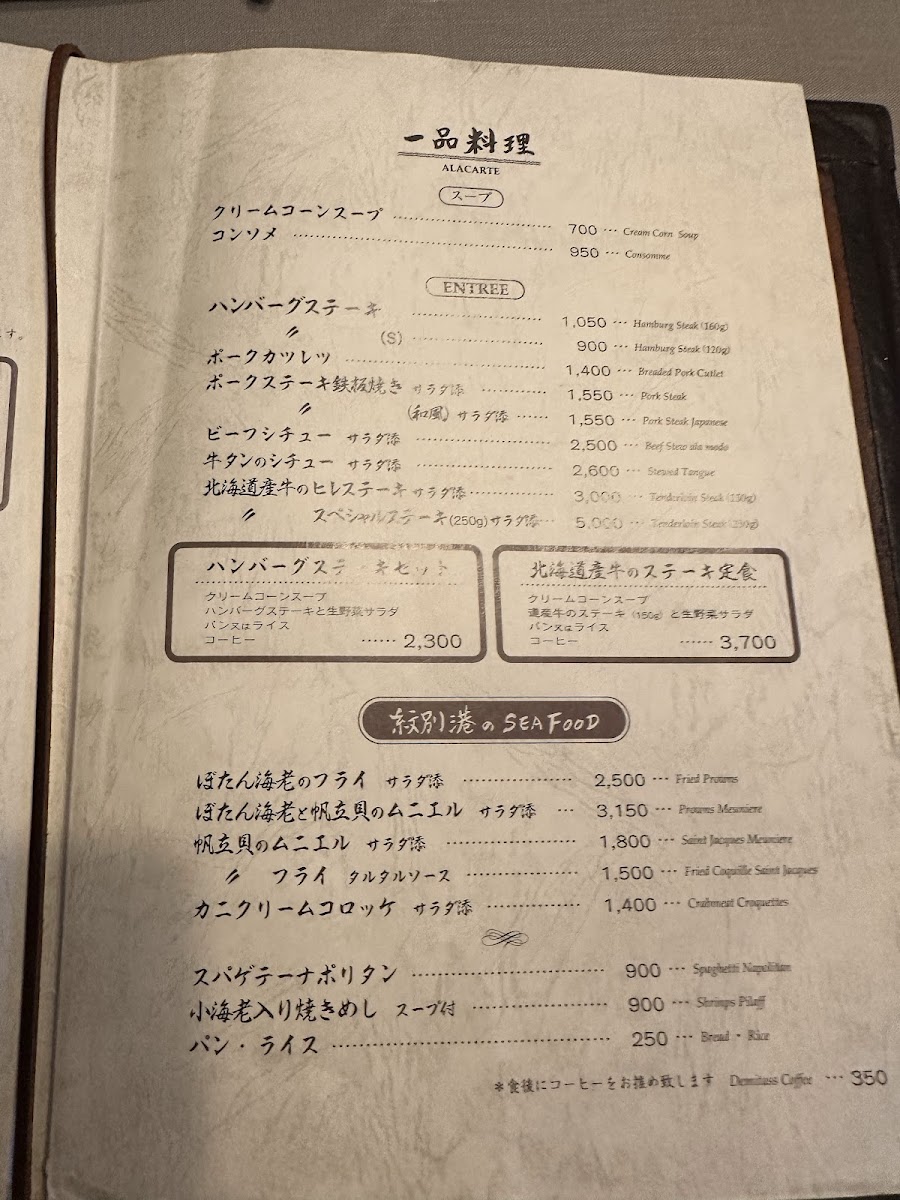 一品料理
ALACARTE
スープ
クリームコーンスープ 700 … Cream Corn Soup
コンソメ 950 … Consomme
ENTREE
ハンバーグステーキ 1,050 … Hamburg Steak (160g)
〃 (S) 900 … Hamburg Steak (120g)
ポークカツレツ 1,400 … Breaded Pork Cutlet
ポークステーキ鉄板焼き サラダ添 1,550 … Pork Steak
〃 (和風) サラダ添 1,550 … Pork Steak Japanese
ビーフシチュー サラダ添 2,500 … Beef Stew ala mode
牛タンのシチュー サラダ添 2,600 … Stewed Tangue
北海道産牛のヒレステーキ サラダ添 3,000 … Tenderloin Steak (150g)
〃 スペシャルステーキ(250g)サラダ添 5,000 … Tenderloin Steak (250g)
ハンバーグステーキセット
クリームコーンスープ
ハンバーグステーキと生野菜サラダ
パン又はライス
コーヒー …… 2,300
北海道産牛のステーキ定食
クリームコーンスープ
道産牛のステーキ (150g) と生野菜サラダ
パン又はライス
コーヒー …… 3,700
紋別港の SEA FOOD
ぼたん海老のフライ サラダ添 2,500 … Fried Prowns
ぼたん海老と帆立貝のムニエル サラダ添 … 3,150 … Prowns Meuniere
帆立貝のムニエル サラダ添 1,800 … Saint Jacques Meuniere
〃 フライ タルタルソース 1,500 … Fried Coquille Saint Jacques
カニクリームコロッケ サラダ添 1,400 … Crabmeat Croquettes
スパゲテーナポリタン 900 … Spaghetti Napolitan
小海老入り焼きめし スープ付 900 … Shrimps Pilaff
パン・ライス 250 … Bread・Rice
＊食後にコーヒーをお推め致します Demitass Coffee … 350
ます。